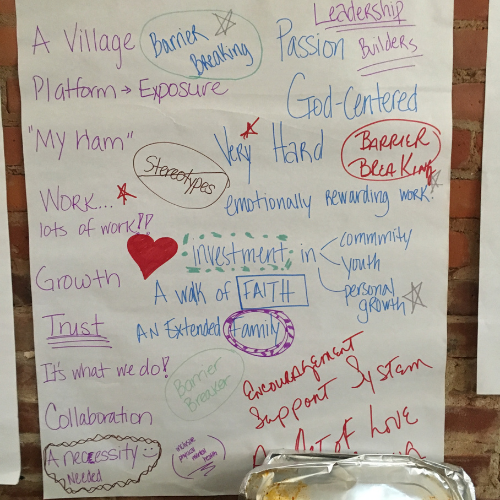 Leadership
A Village
Barrier
Breaking
Passion
Builders
Platform → Exposure
God-Centered
"My Ham"
Very Hard
BARRIER
BREAKING
Stereotypes
Work...
lots of work!!
emotionally rewarding work!
investment in
community
youth
personal
growth
Growth
A walk of FAITH
Trust
AN Extended family
It's what we do!
Barrier
Breaker
Encouragement
Support System
Collaboration
Act of Love
A necessity
Needed